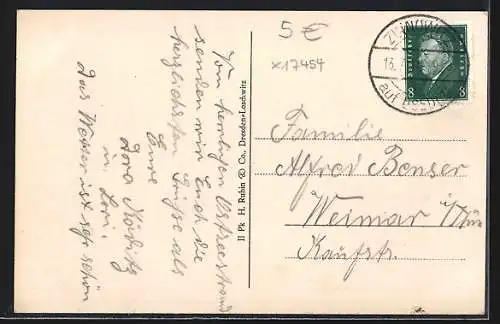 Vom herrlichen Ostseestrand
senden wir Euch die
herzlichsten Grüsse als
Eure
Dora Köditz
u. Lori.
Das Wasser ist sehr schön
II Pk H. Rubin & Co., Dresden-Loschwitz
5 €
x17454
8 8
Familie
Alfred Benser
Weimar i/Thür
Kaufstr.